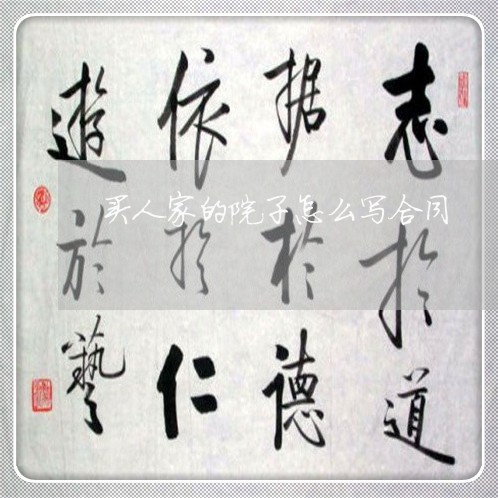 志於道
据於德
依於仁
遊於藝
买人家的院子怎么写合同